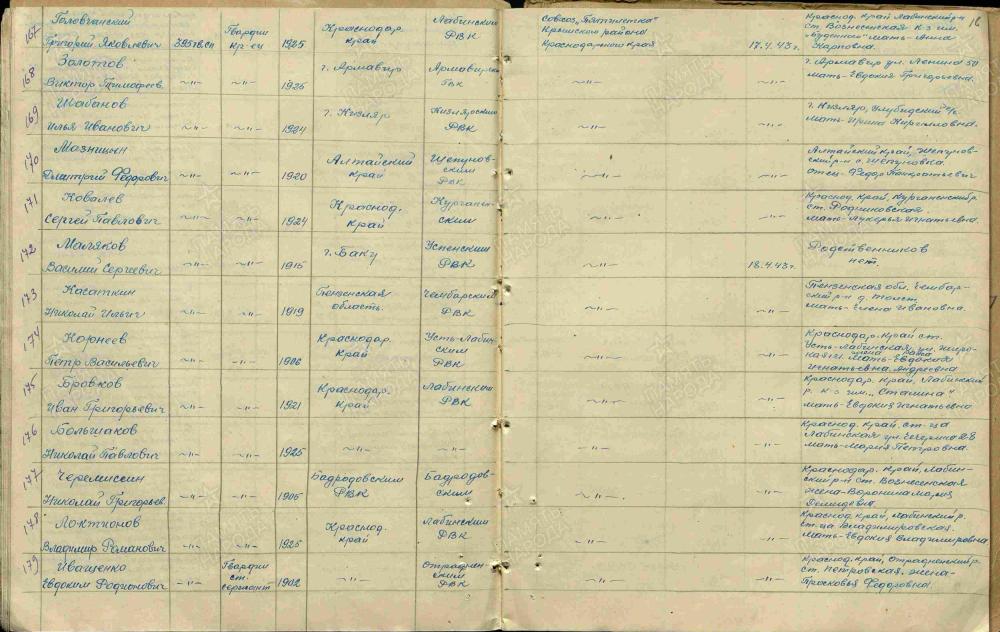 16
167 Головчанский Гвардии Краснодар. Лабинским
Григорий Яковлевич 395 гв.сп кр-ец 1925 край РВК
Совхоз „Пятилетка“
Крымского района
Краснодарского края 17.4.43г.
Краснод. край Лабинский р-н
ст. Вознесенская к-з им.
Буденного мать-Анна
Карповна.
168 Золотов г. Армавир Армавирск.
Виктор Тимофеев. —„— —„— 1925 ГВК —„— —„—
г. Армавир ул. Ленина 50
мать-Евдокия Григорьевна.
169 Шабанов г. Кизляр Кизлярским
Илья Иванович —„— —„— 1924 РВК —„— —„—
г. Кизляр, с/с.
Мать-Ирина Кирилловна.
170 Мазницын Алтайский Шепунов-
Дмитрий Федорович —„— —„— 1920 край ским
РВК —„— —„—
Алтайский край, Шепунов-
ский р-н с. Шепуновка.
отец-Федор Панкратьевич
171 Ковалев Краснод. Курганен-
Сергей Павлович —„— —„— 1924 край ским —„— —„—
Краснод. край, Курганенский р
ст. Родниковская.
мать-Лукерья Игнатьевна.
172 Маляков г. Баку Успенским
Василий Сергеевич —„— —„— 1915 РВК —„— 18.4.43г.
Родственников
нет.
173 Касаткин Пензенская Чембарским
Николай Ильич —„— —„— 1919 область. РВК —„— —„—
Пензенская обл. Чембар-
ский р-н д. Толст.
мать-Елена Ивановна.
174 Корнеев Краснодар. Усть-Лабин-
Петр Васильевич —„— —„— 1906 край ским
РВК —„— —„—
Краснодар. край ст.
Усть-Лабинская, ул.
Мать-Евдокия
Игнатьевна Андреевна
175 Бровков Краснодар. Лабинским
Иван Григорьевич —„— —„— 1921 край РВК —„— —„—
Краснодар. край, Лабинский
р. к-з им. „Сталина“
мать-Евдокия Игнатьевна
176 Большаков
Николай Павлович —„— —„— 1925 —„— —„— —„— —„—
Краснод. край, ст-ца
Лабинская ул. 28
мать-Мария Петровна.
177 Черемиссин Бадродовским Бадродов-
Николай Григорьев. —„— —„— 1905 РВК ским —„— —„—
Краснодар. край, Лабин-
ский р-н ст. Вознесенская
жена-Воронина Мария
Демидовна.
178 Локтионов Краснод. Лабинским
Владимир Романович —„— —„— 1925 край РВК —„— —„—
Краснод. край, Лабинский р.
ст-ца Владимировская.
мать-Евдокия Владимировна
179 Иващенко Гвардии Отраднен-
Евдоким Родионович —„— ст. сержант 1902 —„— ским
РВК —„— —„—
Краснод. край, Отрадненский р.
ст. Петровская. жена-
Прасковья Федоровна.